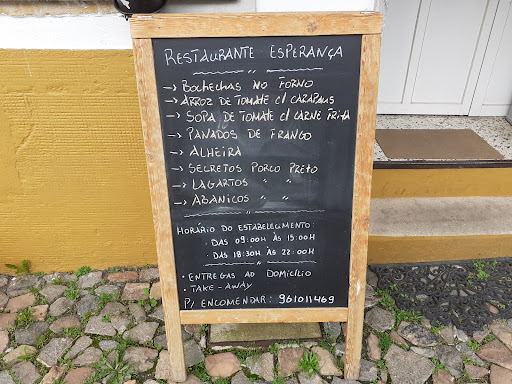 RESTAURANTE ESPERANÇA
→ BOCHECHAS NO FORNO
→ ARROZ DE TOMATE C/ CARAPAUS
→ SOPA DE TOMATE C/ CARNE FRITA
→ PANADOS DE FRANGO
→ ALHEIRA
→ SECRETOS PORCO PRETO
→ LAGARTOS " "
→ ABANICOS " "
HORÁRIO DO ESTABELECIMENTO:
. DAS 09:00H ÀS 15:00H
. DAS 18:30H ÀS 22:00H
• ENTREGAS AO DOMICÍLIO
• TAKE-AWAY
P/ ENCOMENDAR: 961011469